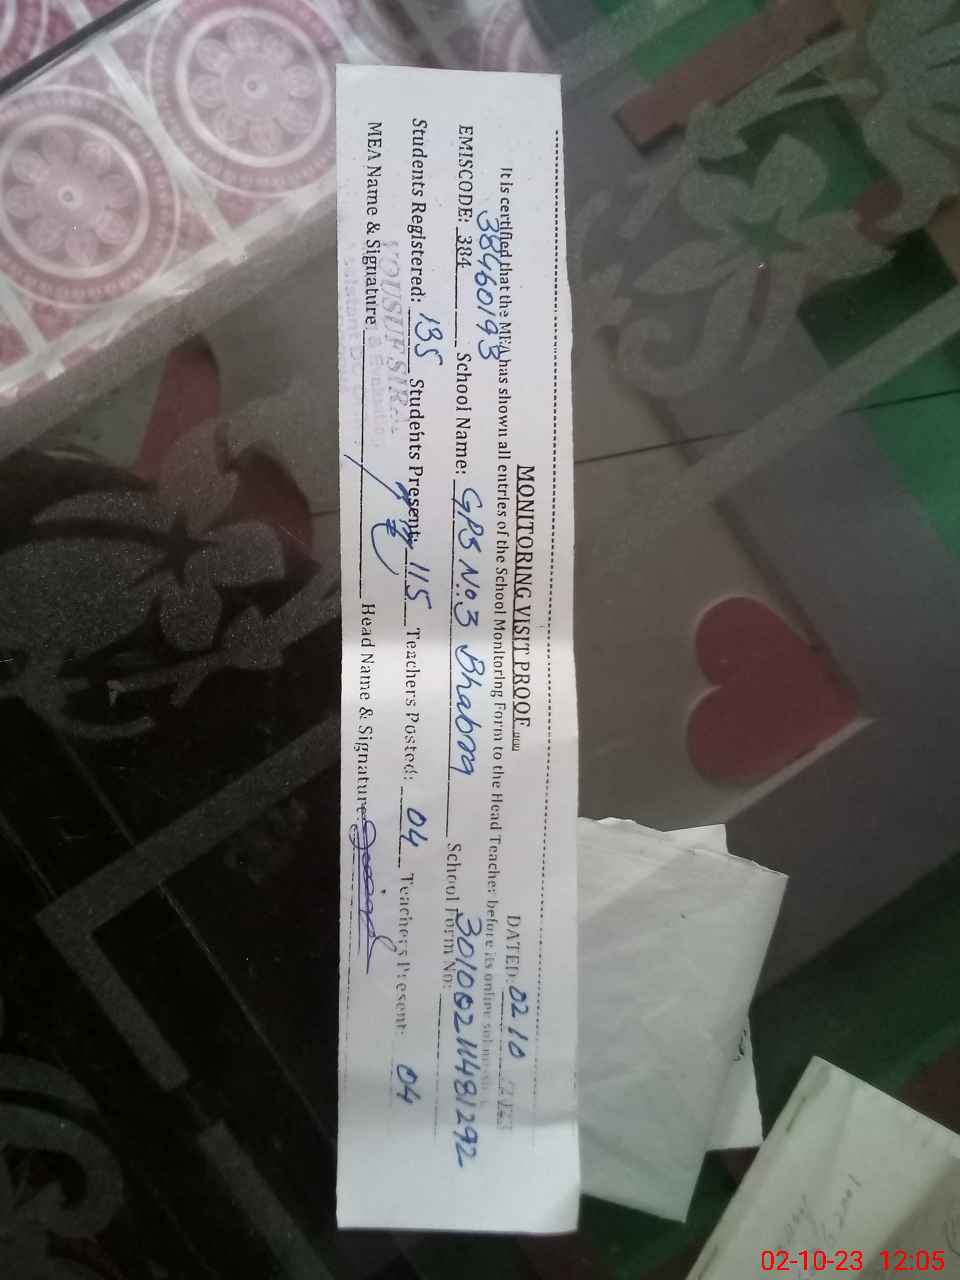 MONITORING VISIT PROOF
DATED: 02 10
It is certified that the MEA has shown all entries of the School Monitoring Form to the Head Teacher before its online
38460193
EMISCODE: 384 School Name: GPS No.3 Bhabra School Form No: 3010021481292
Students Registered: 135 Students Present: 115 Teachers Posted: 04 Teachers Present: 04
YOUSUF
MEA Name & Signature Head Name & Signature
02-10-23 12:05